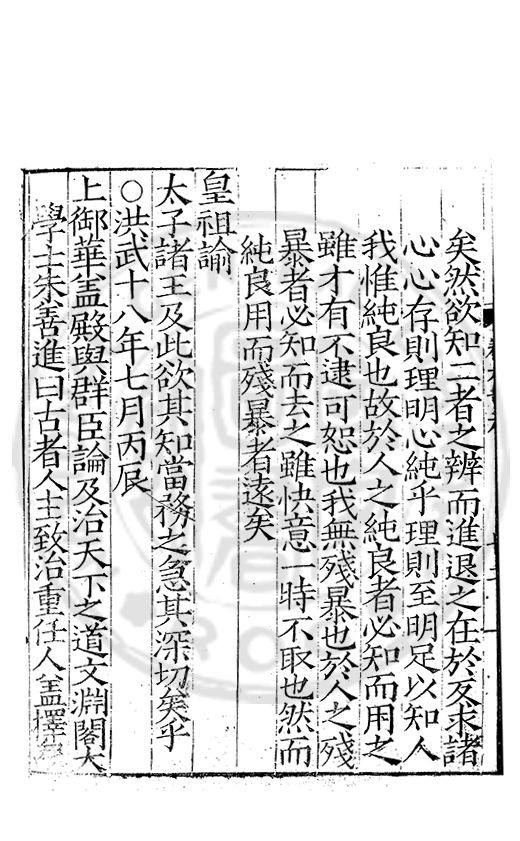 矣然欲知二者之辨而進退之在於反求諸
心心存則理明心純乎理則至明足以知人
我惟純良也故於人之純良者必知而用之
雖才有不逮可恕也我無殘暴也於人之殘
暴者必知而去之雖快意一時不取也然而
純良用而殘暴者遠矣
皇祖諭
太子諸王及此欲其知當務之急其深切矣乎
○洪武十八年七月丙辰
上御華盖殿與群臣論及治天下之道文淵閣大
學士朱善進曰古者人主致治重任人盖擇